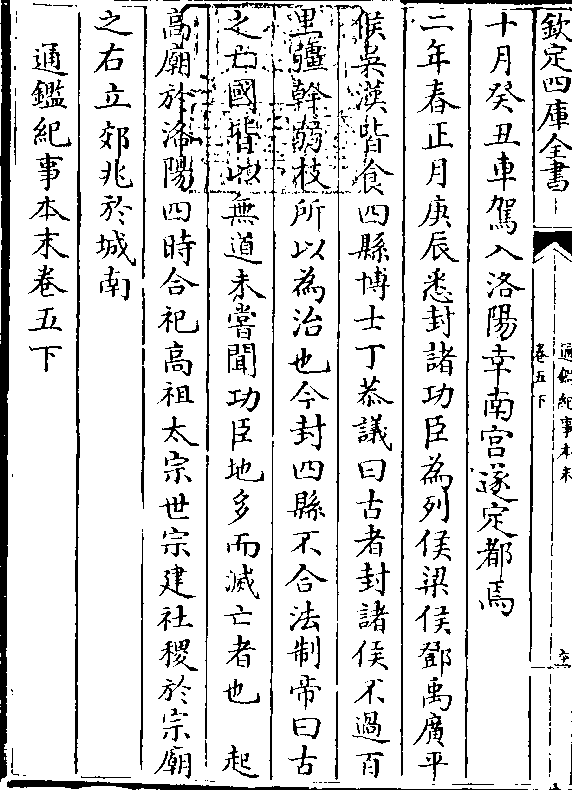 欽定四庫全書
通鑑紀事本末
卷五下
十月癸丑車駕入洛陽幸南宫遂定都焉
二年春正月庚辰悉封諸功臣為列侯梁侯鄧禹廣平
侯吳漢皆食四縣博士丁恭議曰古者封諸侯不過百
里彊榦弱枝所以為治也今封四縣不合法制帝曰古
之亡國皆以無道未嘗聞功臣地多而滅亡者也 起
高廟於洛陽四時合祀高祖太宗世宗建社稷於宗廟
之右立郊兆於城南
通鑑紀事本末卷五下